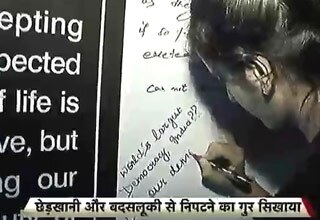 epting
pected
f life is
ve, but
ng our
as the
if so
can not
World's largest
Democracy India??
our
छेड़खानी और बदसलूकी से निपटने का गुर सिखाया